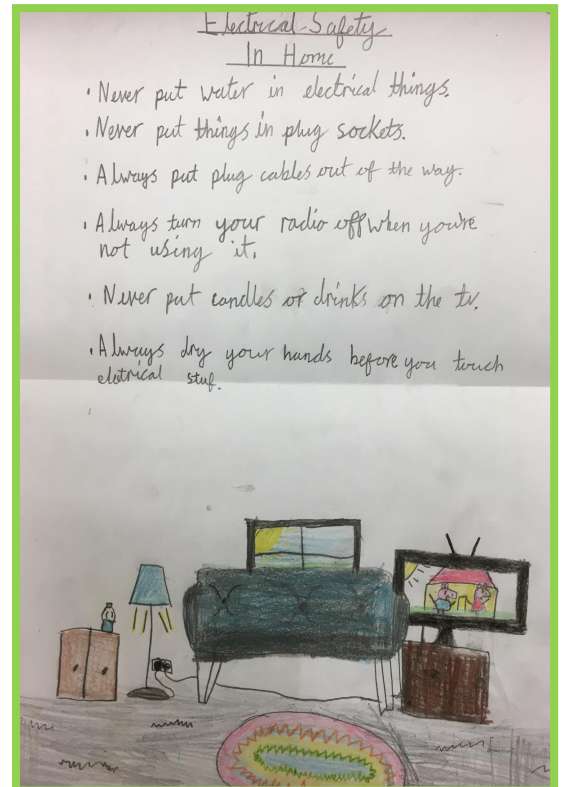 Electrical Safety
In Home
• Never put water in electrical things.
• Never put things in plug sockets.
• Always put plug cables out of the way.
• Always turn your radio off when you're
not using it.
• Never put candles or drinks on the tv.
• Always dry your hands before you touch
eletrical stuf.